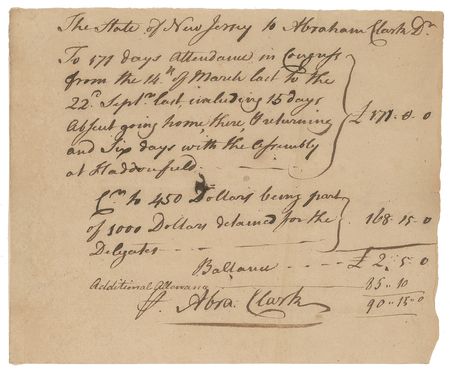 The State of New Jersey to Abraham Clark Dr
To 171 days Attendance in Congress
from the 14th of March last to the
22d Septr last, including 15 days
Absent going home, there, & returning
and Six days with the Assembly
at Haddonfield - - - - £ 171. 0. 0
to 450 Dollars being part
of 1000 Dollars detained for the
Delegates - - - - 168. 15. 0
Ballance - - - - £ 2. 5. 0
Additional Allowance 85 .. 10
Abra. Clark 90 .. 15 .. 0